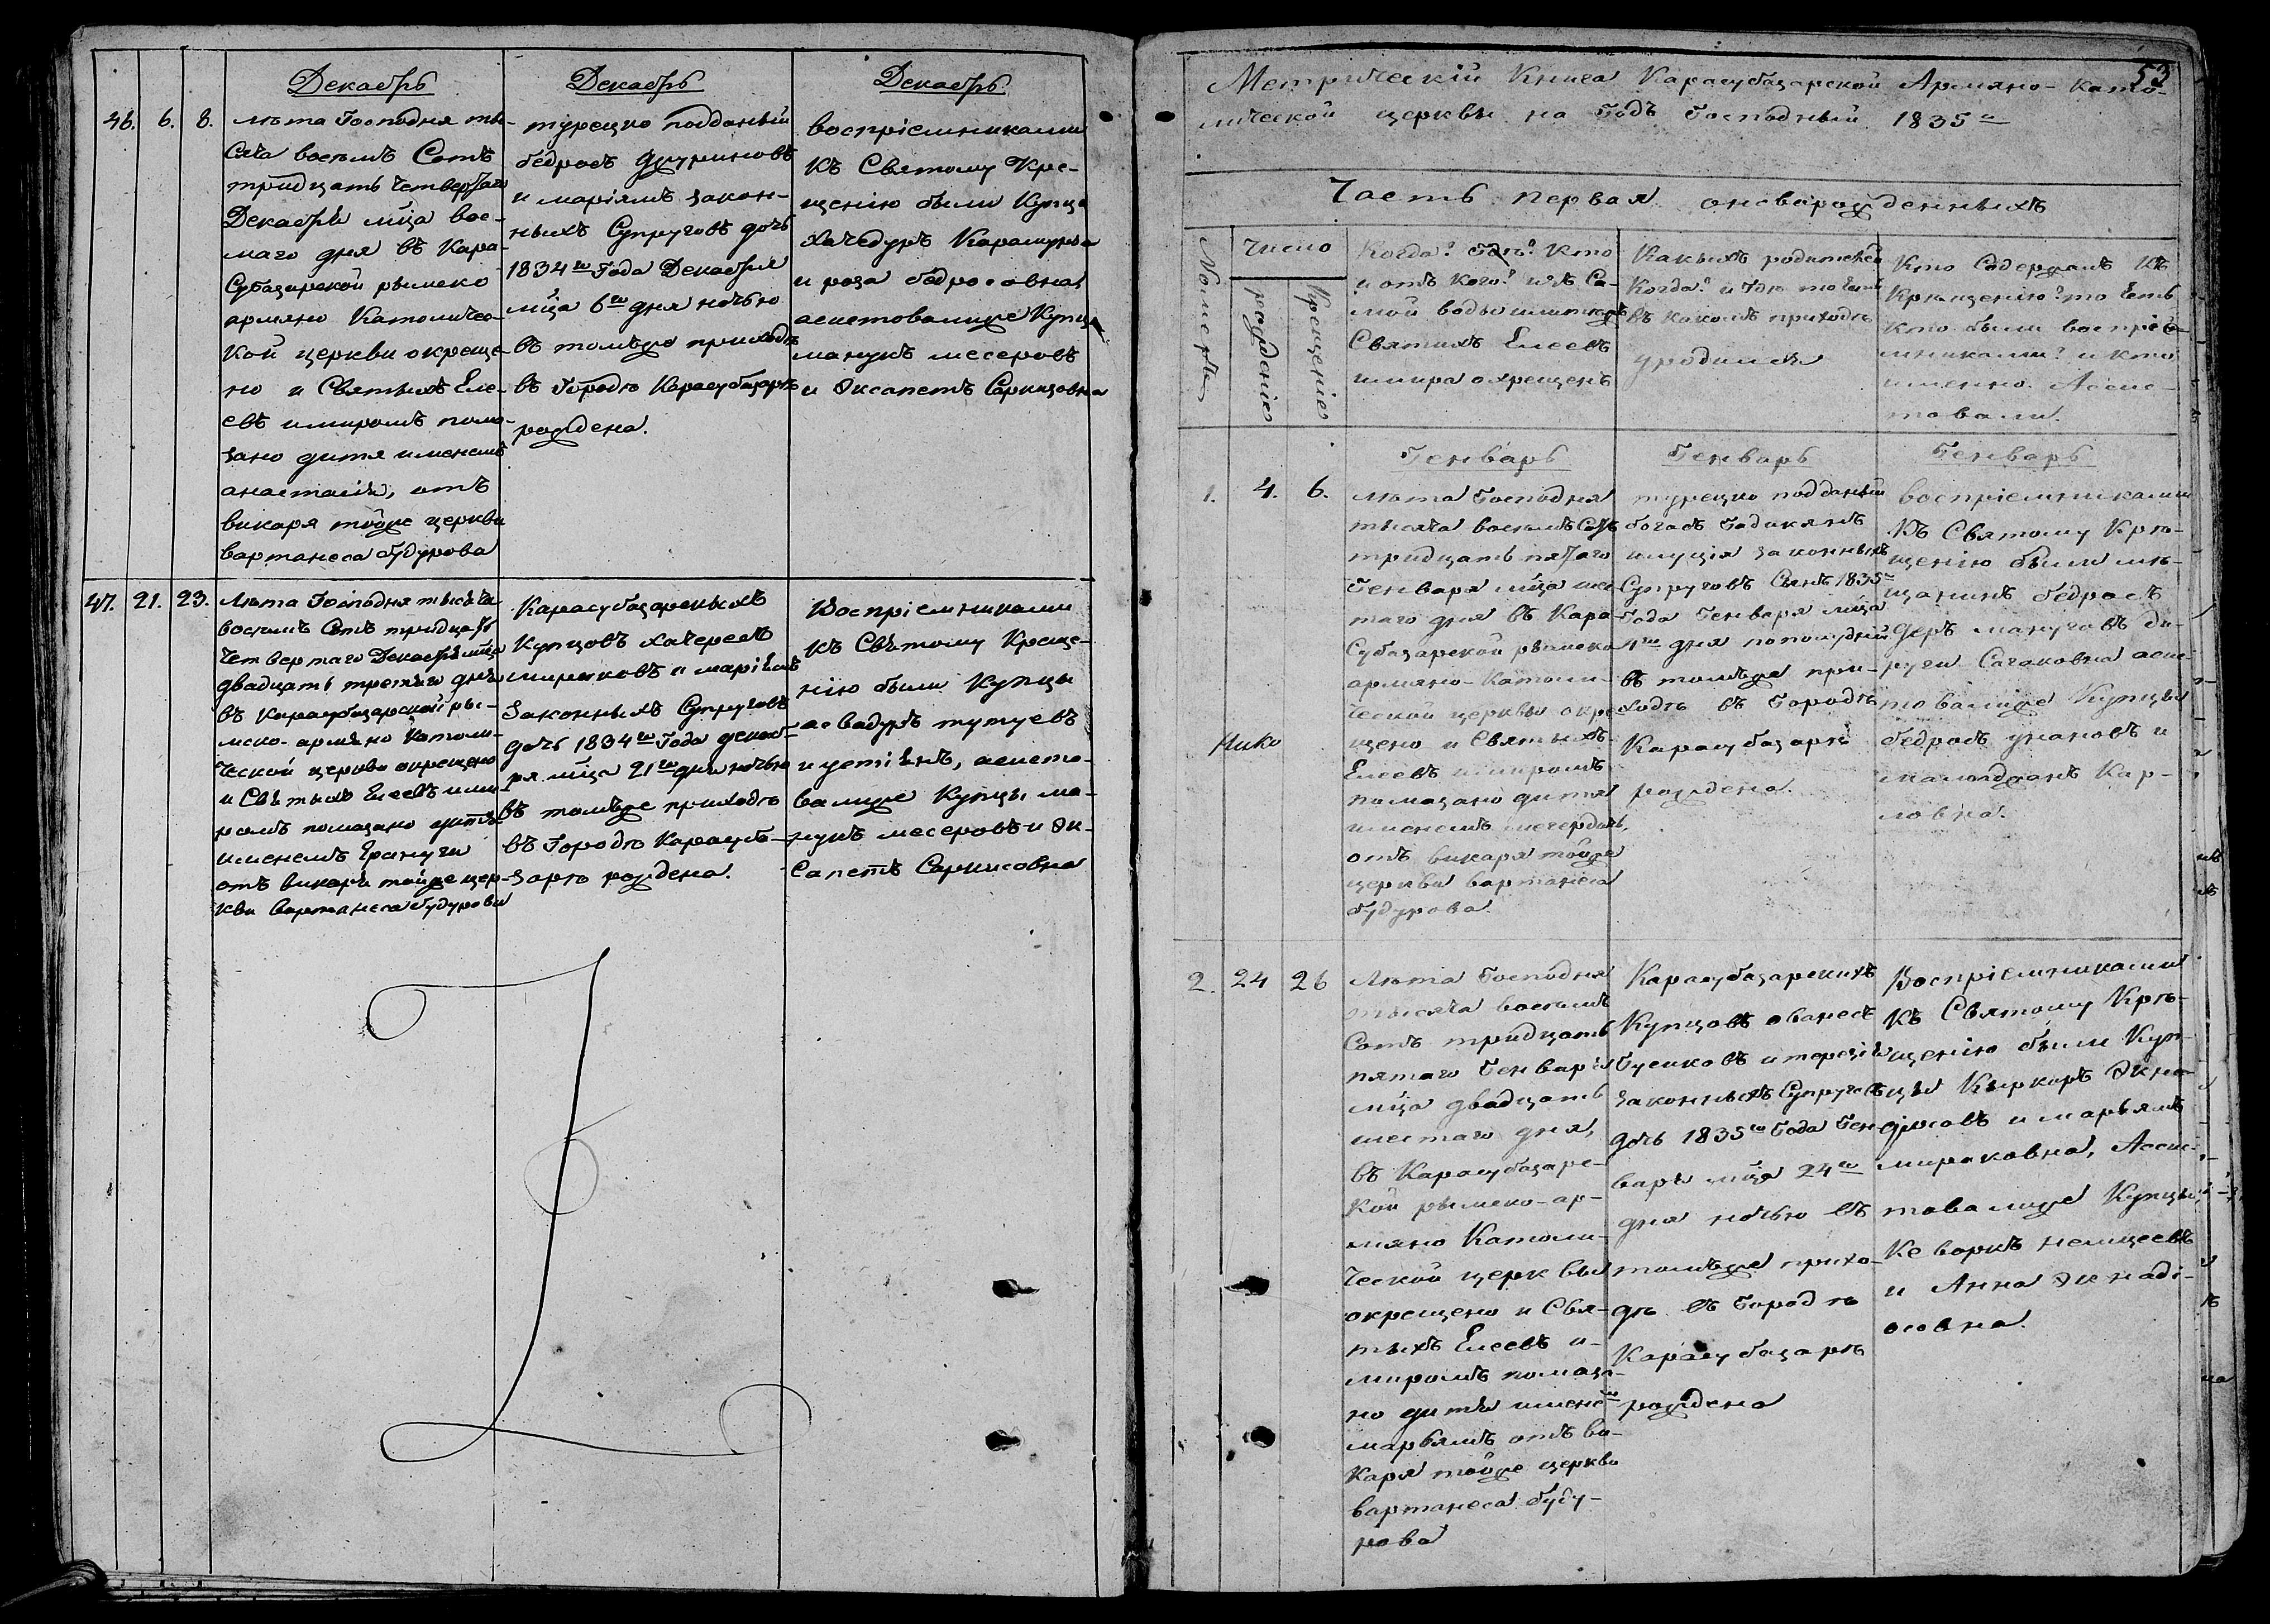 Декабрь
46. 6. 8.
лѣта Господня ты-
сяча восемь Сотъ
тридцать четвертаго
Декабря мѣца вос-
маго дня въ Кара-
Субазарской рымско
армяно Католичес-
кой церкви окреще-
но и Святыхъ Еле-
евъ имиромъ пома-
зано дитя именемъ
анастасія, отъ
викаря тойже церкви
вартанеса будурова
Декабрь
турецко подданый
бедросъ
и маріямъ закон-
ныхъ Супруговъ дочь
1834го Года Декабря
мѣца 6го дня ночью
въ томъже приходѣ
въ Городѣ Карасубазарѣ
рождена.
Декабрь
воспріемниками
къ Святому Кре-
щенію были Купцы
хачедуръ
и роза бедросовна
асистовалиже Купцы
манукъ месеровъ
и Эксапетъ Саркизовна
47. 21. 23.
Лѣта Господня тысяча
восемь Сотъ тридцать
четвертаго Декабря мѣца
двадцать третяго дня
въ Карасубазарской ры-
мско-армяно Католи-
ческой церкви окрещено
и Святыхъ Елеевъ ими-
ромъ помазано дитя
именемъ Ерануги
отъ викаря тойже цер-
кви вартанеса будурова
Карасубазарскыхъ
Купцовъ хачересъ
мираковъ и маріямъ
Законныхъ Супруговъ
дочь 1834го Года декаб-
ря мѣца 21го дня ночью
въ томъже приходѣ
въ Городѣ Карасуба-
зарѣ рождена.
Воспріемниками
къ Святому Креще-
нію были Купцы
асвадуръ тутуевъ
и устіянъ, асисто-
валиже Купцы ма-
нукъ месеровъ и Эк-
сапетъ Саркисовна
53
Метрическій Книга Карасубазарской Армяно-Като-
лической церквы на Годъ Господный 1835го
Часть первая оновѣрожденныхъ
Номеръ
число
рождение
Крещение
Когда? Гдѣ? Кто
и отъ Кого? изъ Са-
мой воды
Святихъ Елеевъ
имира окрещенъ
Какыхъ родителей
Когда? и
въ какомъ приходѣ
уродился
Кто Содержалъ Къ
Крѣщенію? то есть
кто были воспріе-
мниками? и кто
именно Ассис-
товали.
Генварь
1. 4. 6.
лѣта Господня
тысяча восемь Сотъ
тридцать пятаго
Генваря мѣца шес
таго дня въ Кара
Субазарской рымско
армяно-Католи-
ческой церквы окре
щено и Святыхъ
Елеевъ имиромъ
помазано дитя
именемъ
отъ викаря тойже
церкви вартанеса
будурова.
Генварь
турецко подданый
богосъ
законныхъ
Супруговъ Сынъ 1835го
Года Генваря мѣца
4го дня пополудній
въ томъже при-
ходѣ въ Городѣ
Карасубазарѣ
рождена.
Генварь
воспріемниками
Къ Святому Крѣ-
щенію были мѣ-
щанинъ бедросъ
Деръ мануговъ
Сагаковна асис-
товалиже Купцы
бедросъ унановъ и
Кар-
ловна.
2. 24 26
Лѣта Господня
тысяча восемь
Сотъ тридцать
пятаго Генваря
мѣца двадцать
шестаго дня,
въ Карасубазарс-
кой рымско-ар-
мяно Католи-
ческой церквы
окрещено и Свя-
тыхъ Елеевъ и-
миромъ помаза-
но дитя именем
марьямъ отъ ви-
каря тойже церкви
вартанеса буду-
рова
Карасубазарскихъ
Купцовъ ованесъ
Гусиковъ и терезія
Законныхъ Супруговъ
дочь 1835го Года Ген
варь мѣца 24го
дня ночью въ
томъже прихо-
дѣ въ Городѣ
Карасубазарѣ
рождена
Воспріемниками
къ Святому Крѣ-
щенію были Куп-
цы Кыркоръ Экна-
діосовъ и марьямъ
мираковна, Ассис-
товалиже Купцы
Кеворкъ немцевъ
и Анна Экнаді-
осовна.